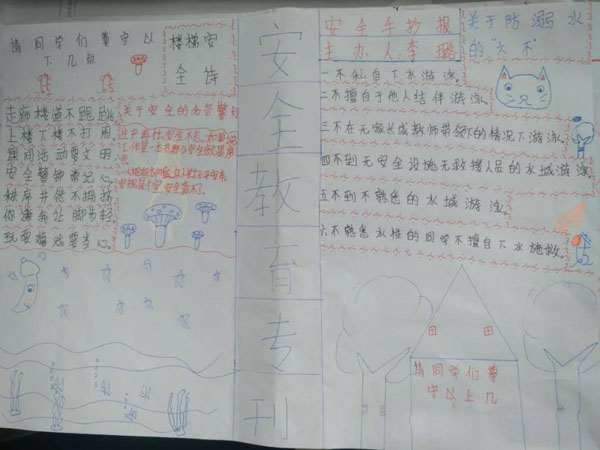 请同学们尊守以
下几点
楼梯安
全诗
走廊楼道不跑跳
上楼下楼不打闹
课间活动要文明
安全警钟要记心
秩序井然不拥挤
你谦我让脚步轻
玩耍嬉戏要当心
关于安全的名言警句
安
全
教
育
专
刊
安全手抄报
主办人:李璐
关于防溺水
的“六不”
一不私自下水游泳。
二不擅自于他人结伴游泳。
三不在无家长或教师带领下的情况下游泳。
四不到无安全设施无救援人员的水域游泳
五不到不熟悉的水域游泳。
六不熟悉水性的同学不擅自下水施救。
请同学们尊
守以上几